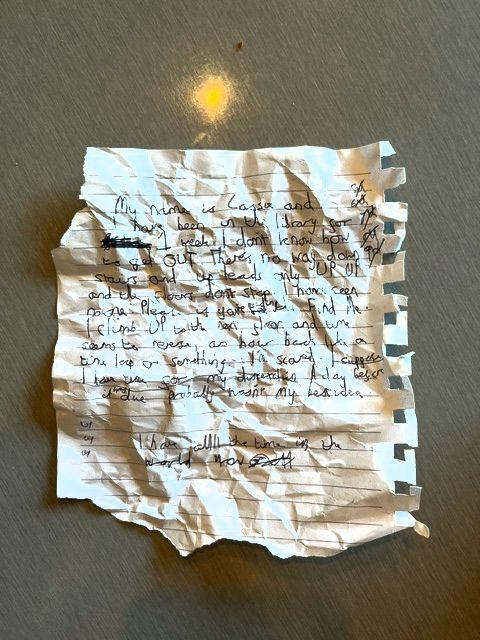 My name is Cassie and
I have been in the library for
1 week. I dont know how
to get OUT. There's no way down
stairs and up leads only UP UP
and the floors dont stop. I have seen
no one. Please if you find me
I climb UP to the next floor and time
seems to reverse an hour back like a
time loop or something. I'm scared. I suppose
I have time for my dissertation A day before
it was due probably wasnt my best idea
I have alll the time in the
world now